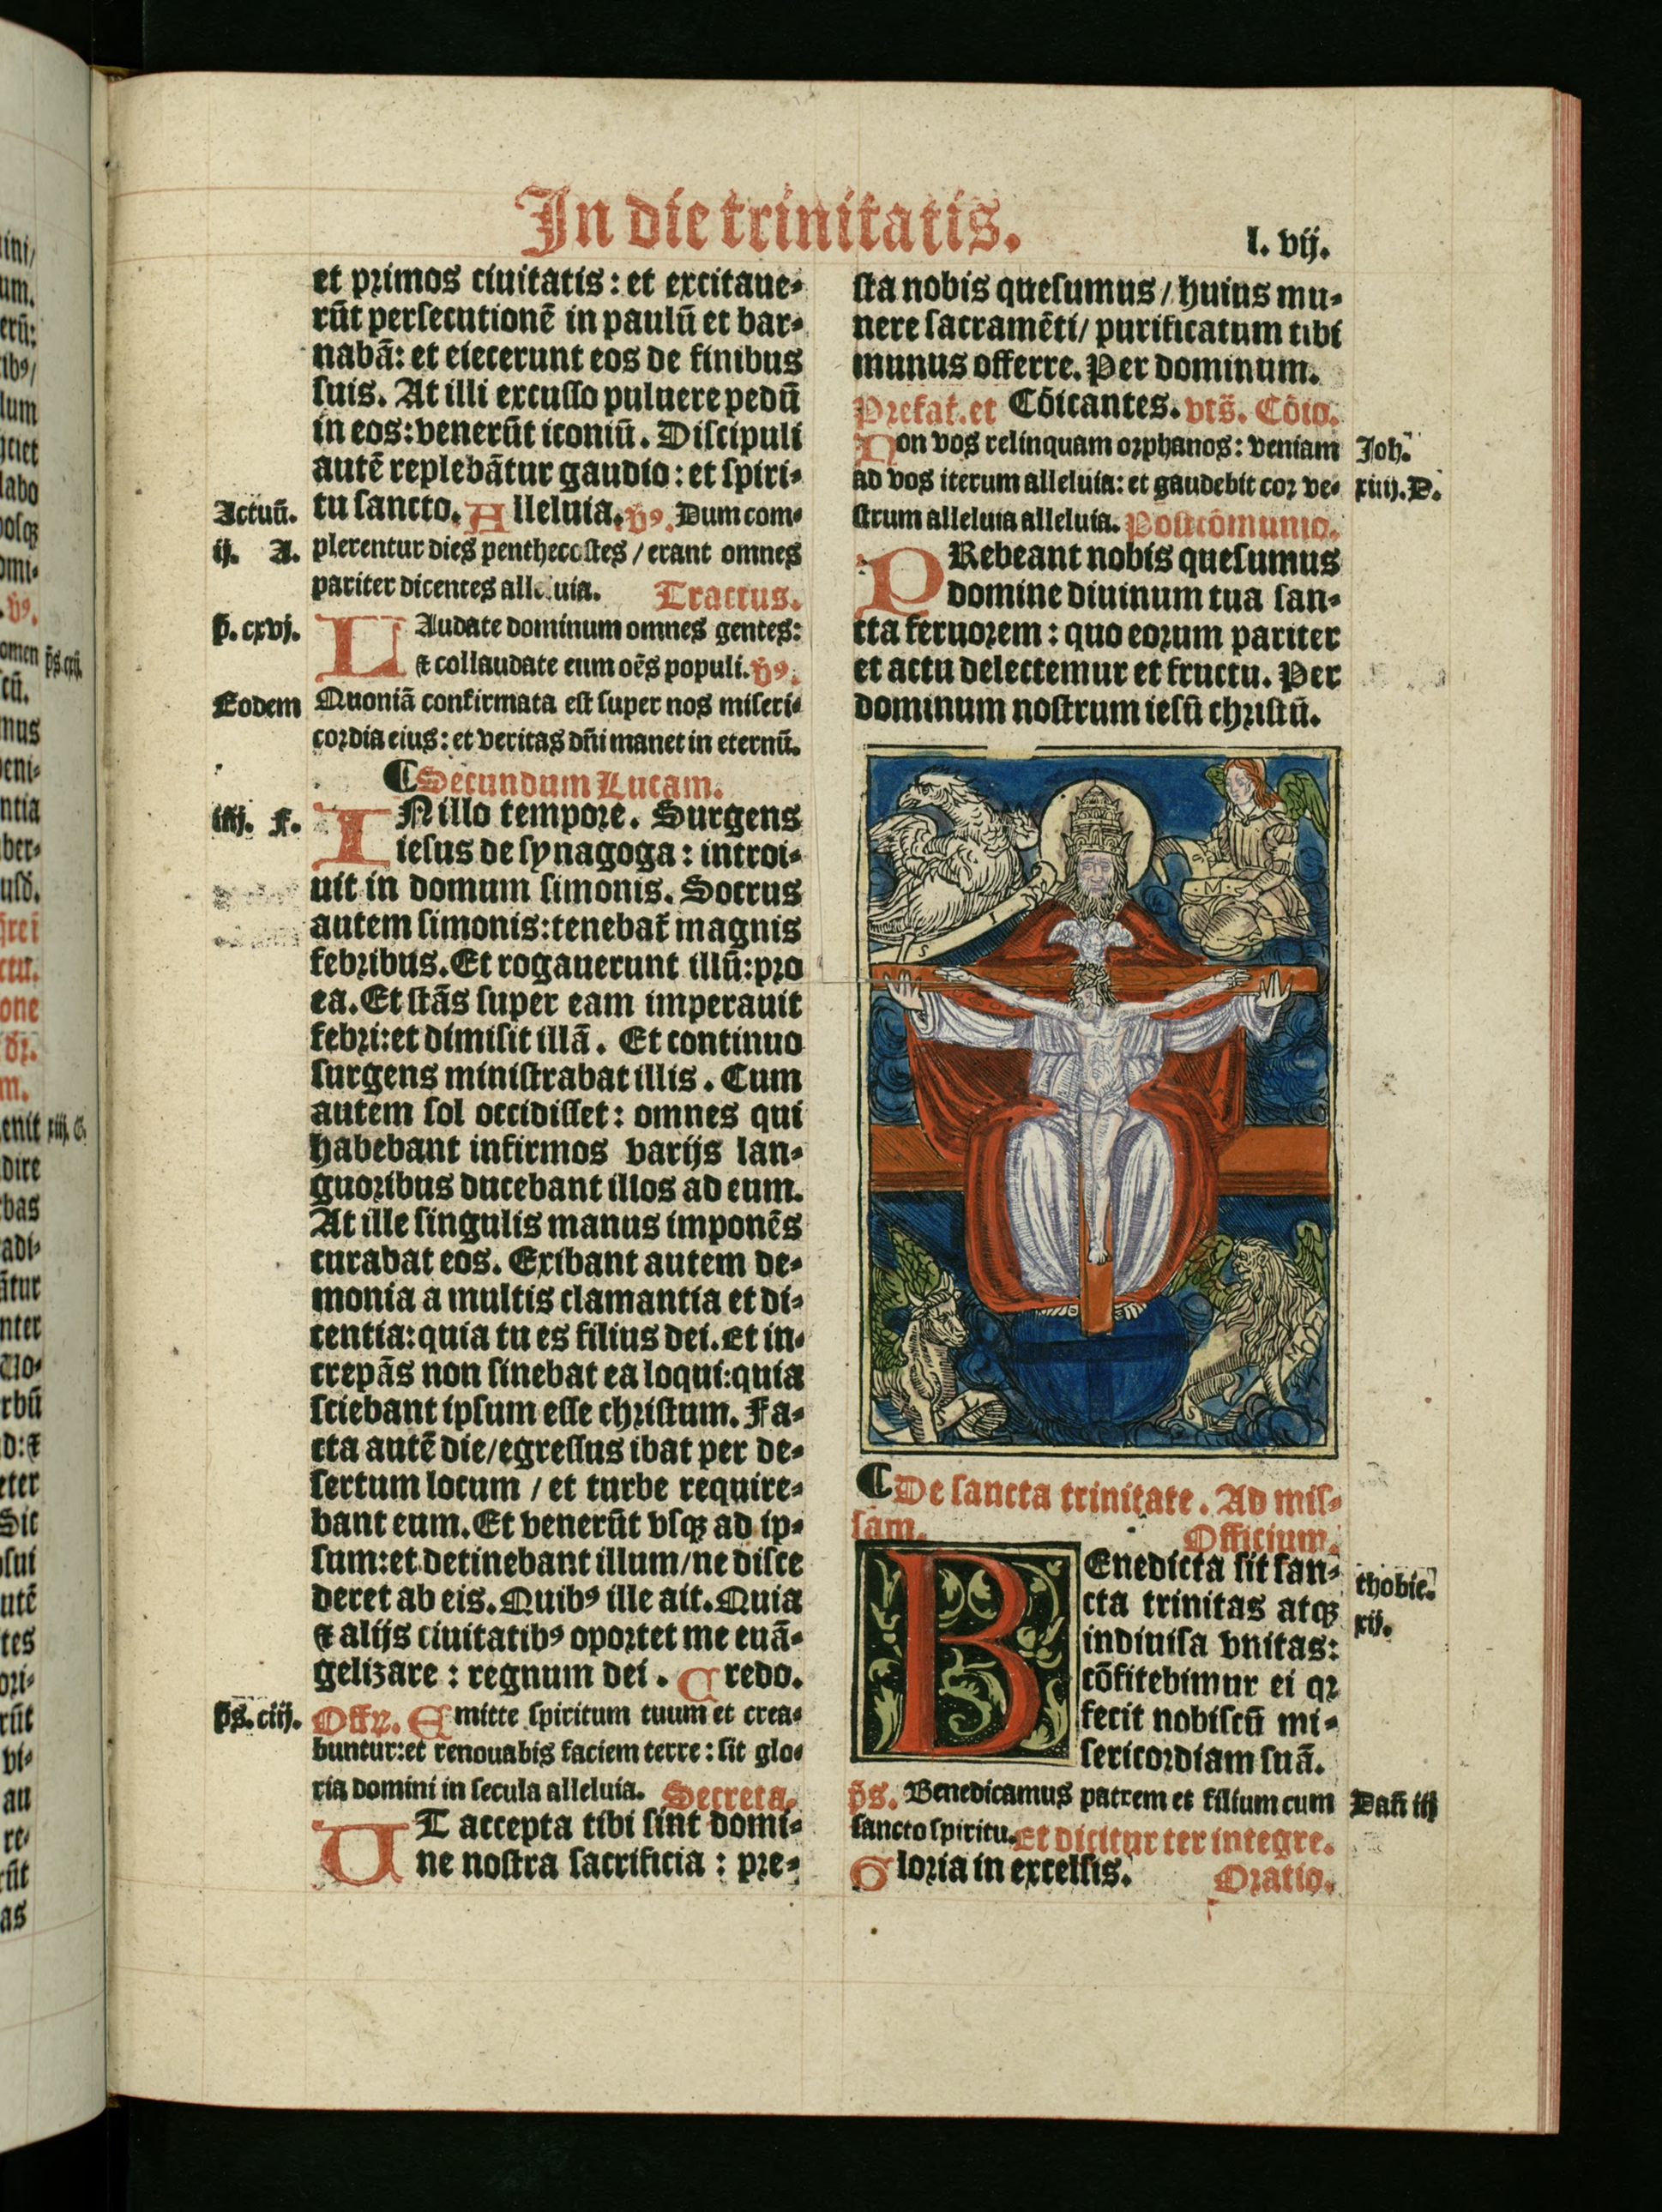 In die trinitatis.
l. vij.
et primos ciuitatis: et excitaue-
rūt persecutionē in paulū et bar-
nabā: et eiecerunt eos de finibus
suis. At illi excusso puluere pedū
in eos: venerūt iconiū. Discipuli
autē replebātur gaudio: et spiri-
Actuū.
tu sancto. Alleluia. v̄ꝰ. Dum com-
ij. A.
plerentur dies penthecostes / erant omnes
pariter dicentes alleluia. Tractus.
p̄. cxvj.
LAudate dominum omnes gentes:
⁊ collaudate eum oēs populi. v̄ꝰ.
Eodem
Quoniā confirmata est super nos miseri-
cordia eius: et veritas dn̄i manet in eternū.
¶ Secundum Lucam.
iiij. F.
IN illo tempore. Surgens
iesus de synagoga: introi-
uit in domum simonis. Socrus
autem simonis: tenebat̄ magnis
febribus. Et rogauerunt illū: pro
ea. Et stās super eam imperauit
febri: et dimisit illā. Et continuo
surgens ministrabat illis. Cum
autem sol occidisset: omnes qui
habebant infirmos varijs lan-
guoribus ducebant illos ad eum.
At ille singulis manus imponēs
curabat eos. Exibant autem de-
monia a multis clamantia et di-
centia: quia tu es filius dei. Et in-
crepās non sinebat ea loqui: quia
sciebant ipsum esse christum. Fa-
cta autē die / egressus ibat per de-
sertum locum / et turbe require-
bant eum. Et venerūt vsqꝫ ad ip-
sum: et detinebant illum / ne disce
deret ab eis. Quibꝰ ille ait. Quia
⁊ alijs ciuitatibꝰ oportet me euā-
gelizare: regnum dei. Credo.
ps. ciij.
Offr̄. Emitte spiritum tuum et crea-
buntur: et renouabis faciem terre: sit glo-
ria domini in secula alleluia. Secreta.
UT accepta tibi sint domi-
ne nostra sacrificia: pre-
sta nobis quesumus / huius mu-
nere sacramēti / purificatum tibi
munus offerre. Per dominum.
Prefat̄. et Cōicantes. vts̄. Cōio.
Non vos relinquam orphanos: veniam
Joh.
ad vos iterum alleluia: et gaudebit cor ve-
xiiij. D.
strum alleluia alleluia. Postcōmunio.
PRebeant nobis quesumus
domine diuinum tua san-
cta feruorem: quo eorum pariter
et actu delectemur et fructu. Per
dominum nostrum iesū christū.
¶ De sancta trinitate. Ad mis-
sam. Officium.
BEnedicta sit san-
thobie.
cta trinitas atqꝫ
xij.
indiuisa vnitas:
cōfitebimur ei qꝛ
fecit nobiscū mi-
sericordiam suā.
p̄s. Benedicamus patrem et filium cum
Dan̄ iij
sancto spiritu. Et dicitur ter integre.
Gloria in excelsis. Oratio.